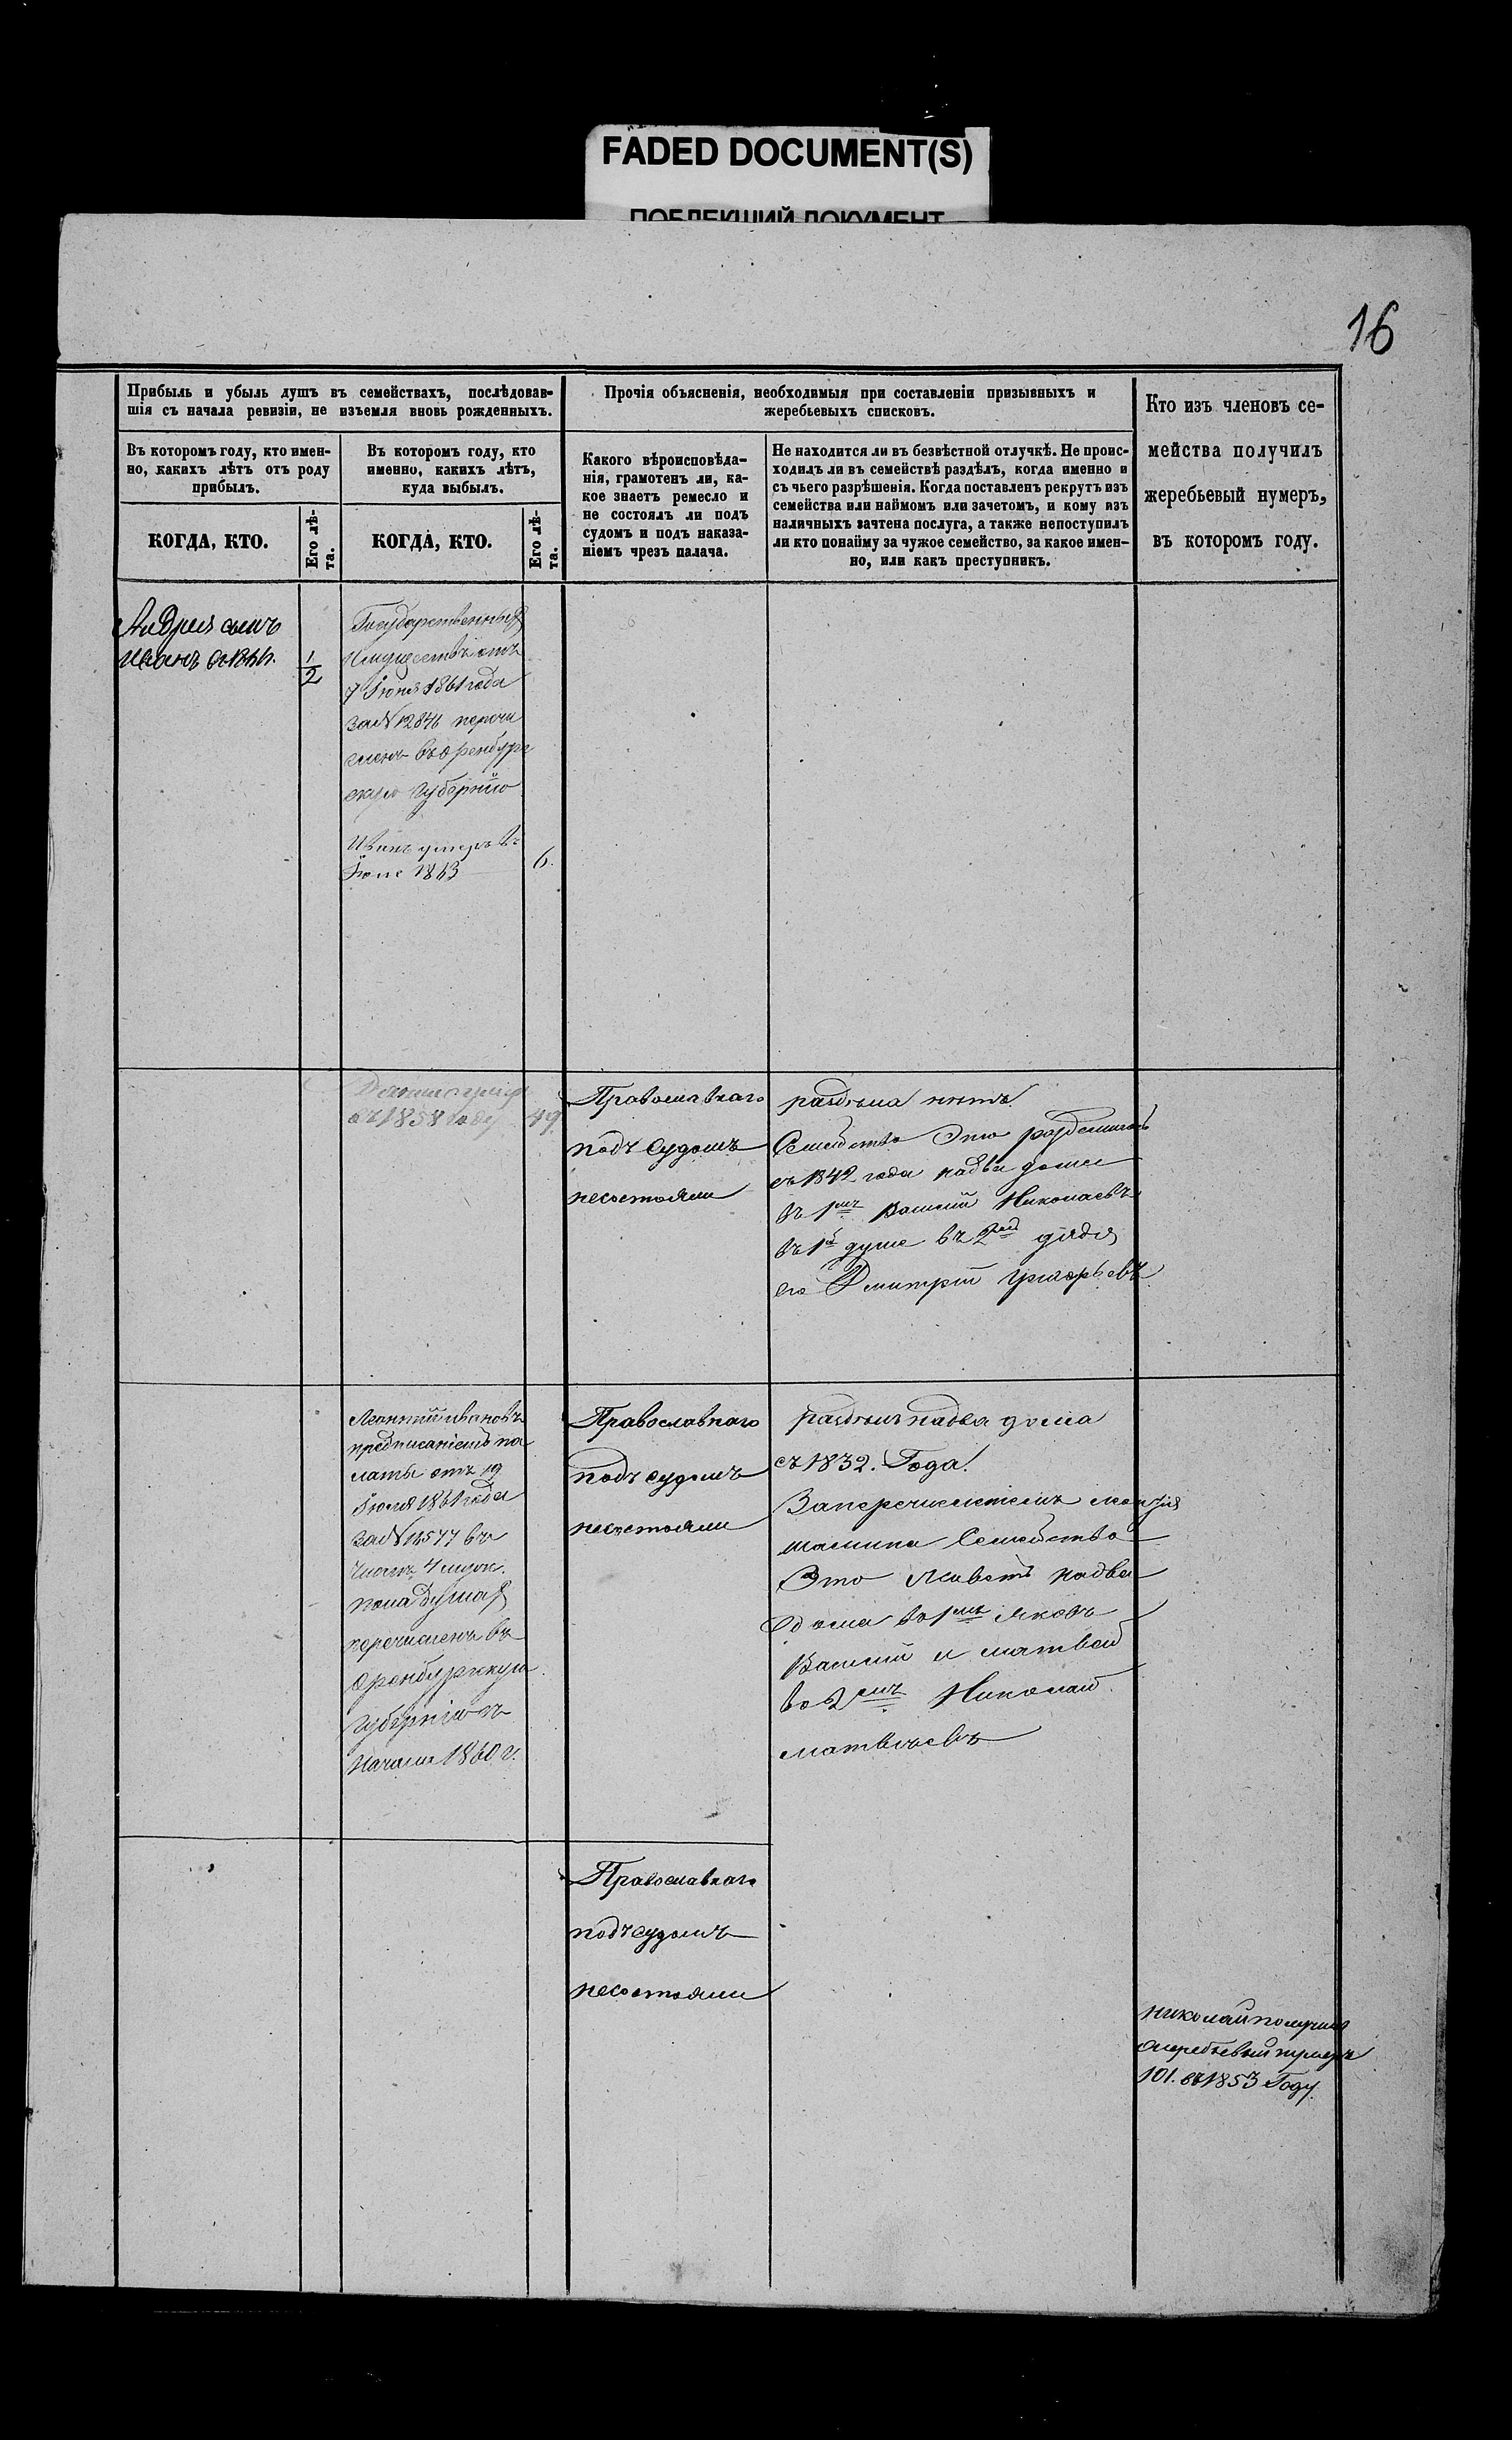 FADED DOCUMENT(S)
ПОБЛЕКШИЙ ДОКУМЕНТ
16
Прибыль и убыль душъ въ семействахъ, послѣдовав-
шія съ начала ревизіи, не изъемля вновь рожденныхъ.
Въ которомъ году, кто имен-
но, какихъ лѣтъ отъ роду
прибылъ.
КОГДА, КТО.
Его лѣ-
та.
Въ которомъ году, кто
именно, какихъ лѣтъ,
куда выбылъ.
КОГДА, КТО.
Его лѣ-
та.
Прочія объясненія, необходимыя при составленіи призывныхъ и
жеребьевыхъ списковъ.
Какого вѣроисповѣда-
нія, грамотенъ ли, ка-
кое знаетъ ремесло и
не состоялъ ли подъ
судомъ и подъ наказа-
ніемъ чрезъ палача.
Не находится ли въ безвѣстной отлучкѣ. Не проис-
ходилъ ли въ семействѣ раздѣлъ, когда именно и
съ чьего разрѣшенія. Когда поставленъ рекрутъ изъ
семейства или наймомъ или зачетомъ, и кому изъ
наличныхъ зачтена послуга, а также непоступилъ
ли кто понайму за чужое семейство, за какое имен-
но, или какъ преступникъ.
Кто изъ членовъ се-
мейства получилъ
жеребьевый нумеръ,
въ которомъ году.
Андрея сынъ
Иванъ
1/2
Государственныхъ
Имуществъ отъ
7 Іюня 1861 года
за № 12846 перечи
сленъ въ Оренбург
скую Губернію
Иванъ умеръ въ
Іюле 1863
6.
въ 1858 году
49
Православнаго
подъ Судомъ
несостояли
раздѣла нѣтъ
Семейство Это разделилось
съ 1842 года на два дома
въ 1мъ Василій Николаевъ
въ 1й душе въ 2мъ дядя
его Дмитрій Григорьевъ
Леонтій Ивановъ
предписаніемъ па
латы отъ 19
Іюля 1861 года
за № 14577 въ
числѣ 4 муж.
пола душахъ
перечисленъ въ
Оренбургскую
Губернію съ
начала 1860 г.
Православнаго
подъ судомъ
несостояли
раздѣлъ на два дома
съ 1832. Года.
Заперечисленіемъ
Семейство
Это живетъ на два
дома во 1мъ Яковъ
Василій и Матвей
во 2мъ Николай
Матвѣевъ
Православнаго
подъ судомъ
несостояли
Николай получилъ
жеребьевый нумеръ
101. въ 1853 Году.